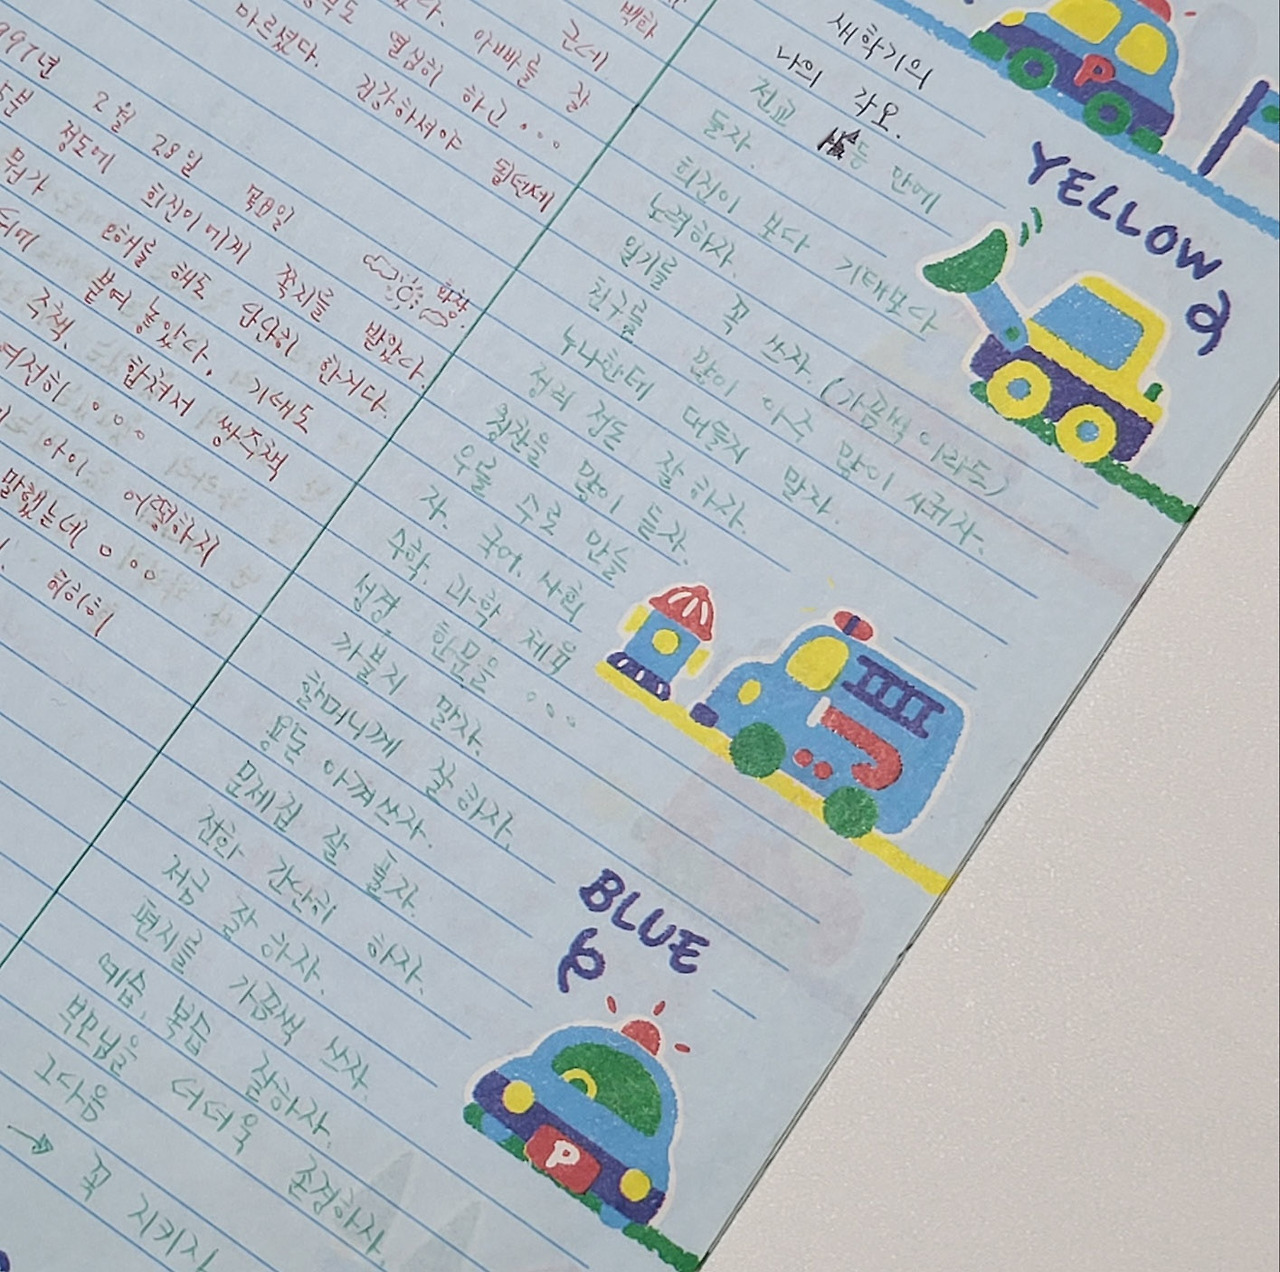 백화
근데
아빠를 잘
열심히 하고...
마르셨다. 건강하셔야 될텐데
1997년 2월 28일 목요일 맑창.
5분 정도에 희진이에게 쪽지를 받았다.
뭔가 오해를 해도 단단히 한거다.
뒤에 붙여 놓았다. 기태도
주책. 합쳐서 쌍주책
여전히 。。。
아이 어떻하지
말했는데 。。。
히히히
새학기의
나의 각오.
전교 등 안에
들자.
희진이 보다 기태보다
노력하자.
일기를 꼭 쓰자. (가끔씩 이라도)
친구를 많이 아주 많이 사귀자.
누나한테 대들지 말자.
정리 정돈 잘 하자.
칭찬을 많이 듣자.
우를 수로 만들
자. 국어. 사회
수학. 과학 체육
성경 한문을 。。。
까불지 말자.
할머니께 잘 하자.
용돈 아껴 쓰자.
문제집 잘 풀자.
전화 간단히 하자.
저금 잘 하자.
편지를 가끔씩 쓰자.
예습. 복습 잘하자.
부모님을 더더욱 존경하자.
그다음
→ 꼭 지키자
P
YELLOW
BLUE
P